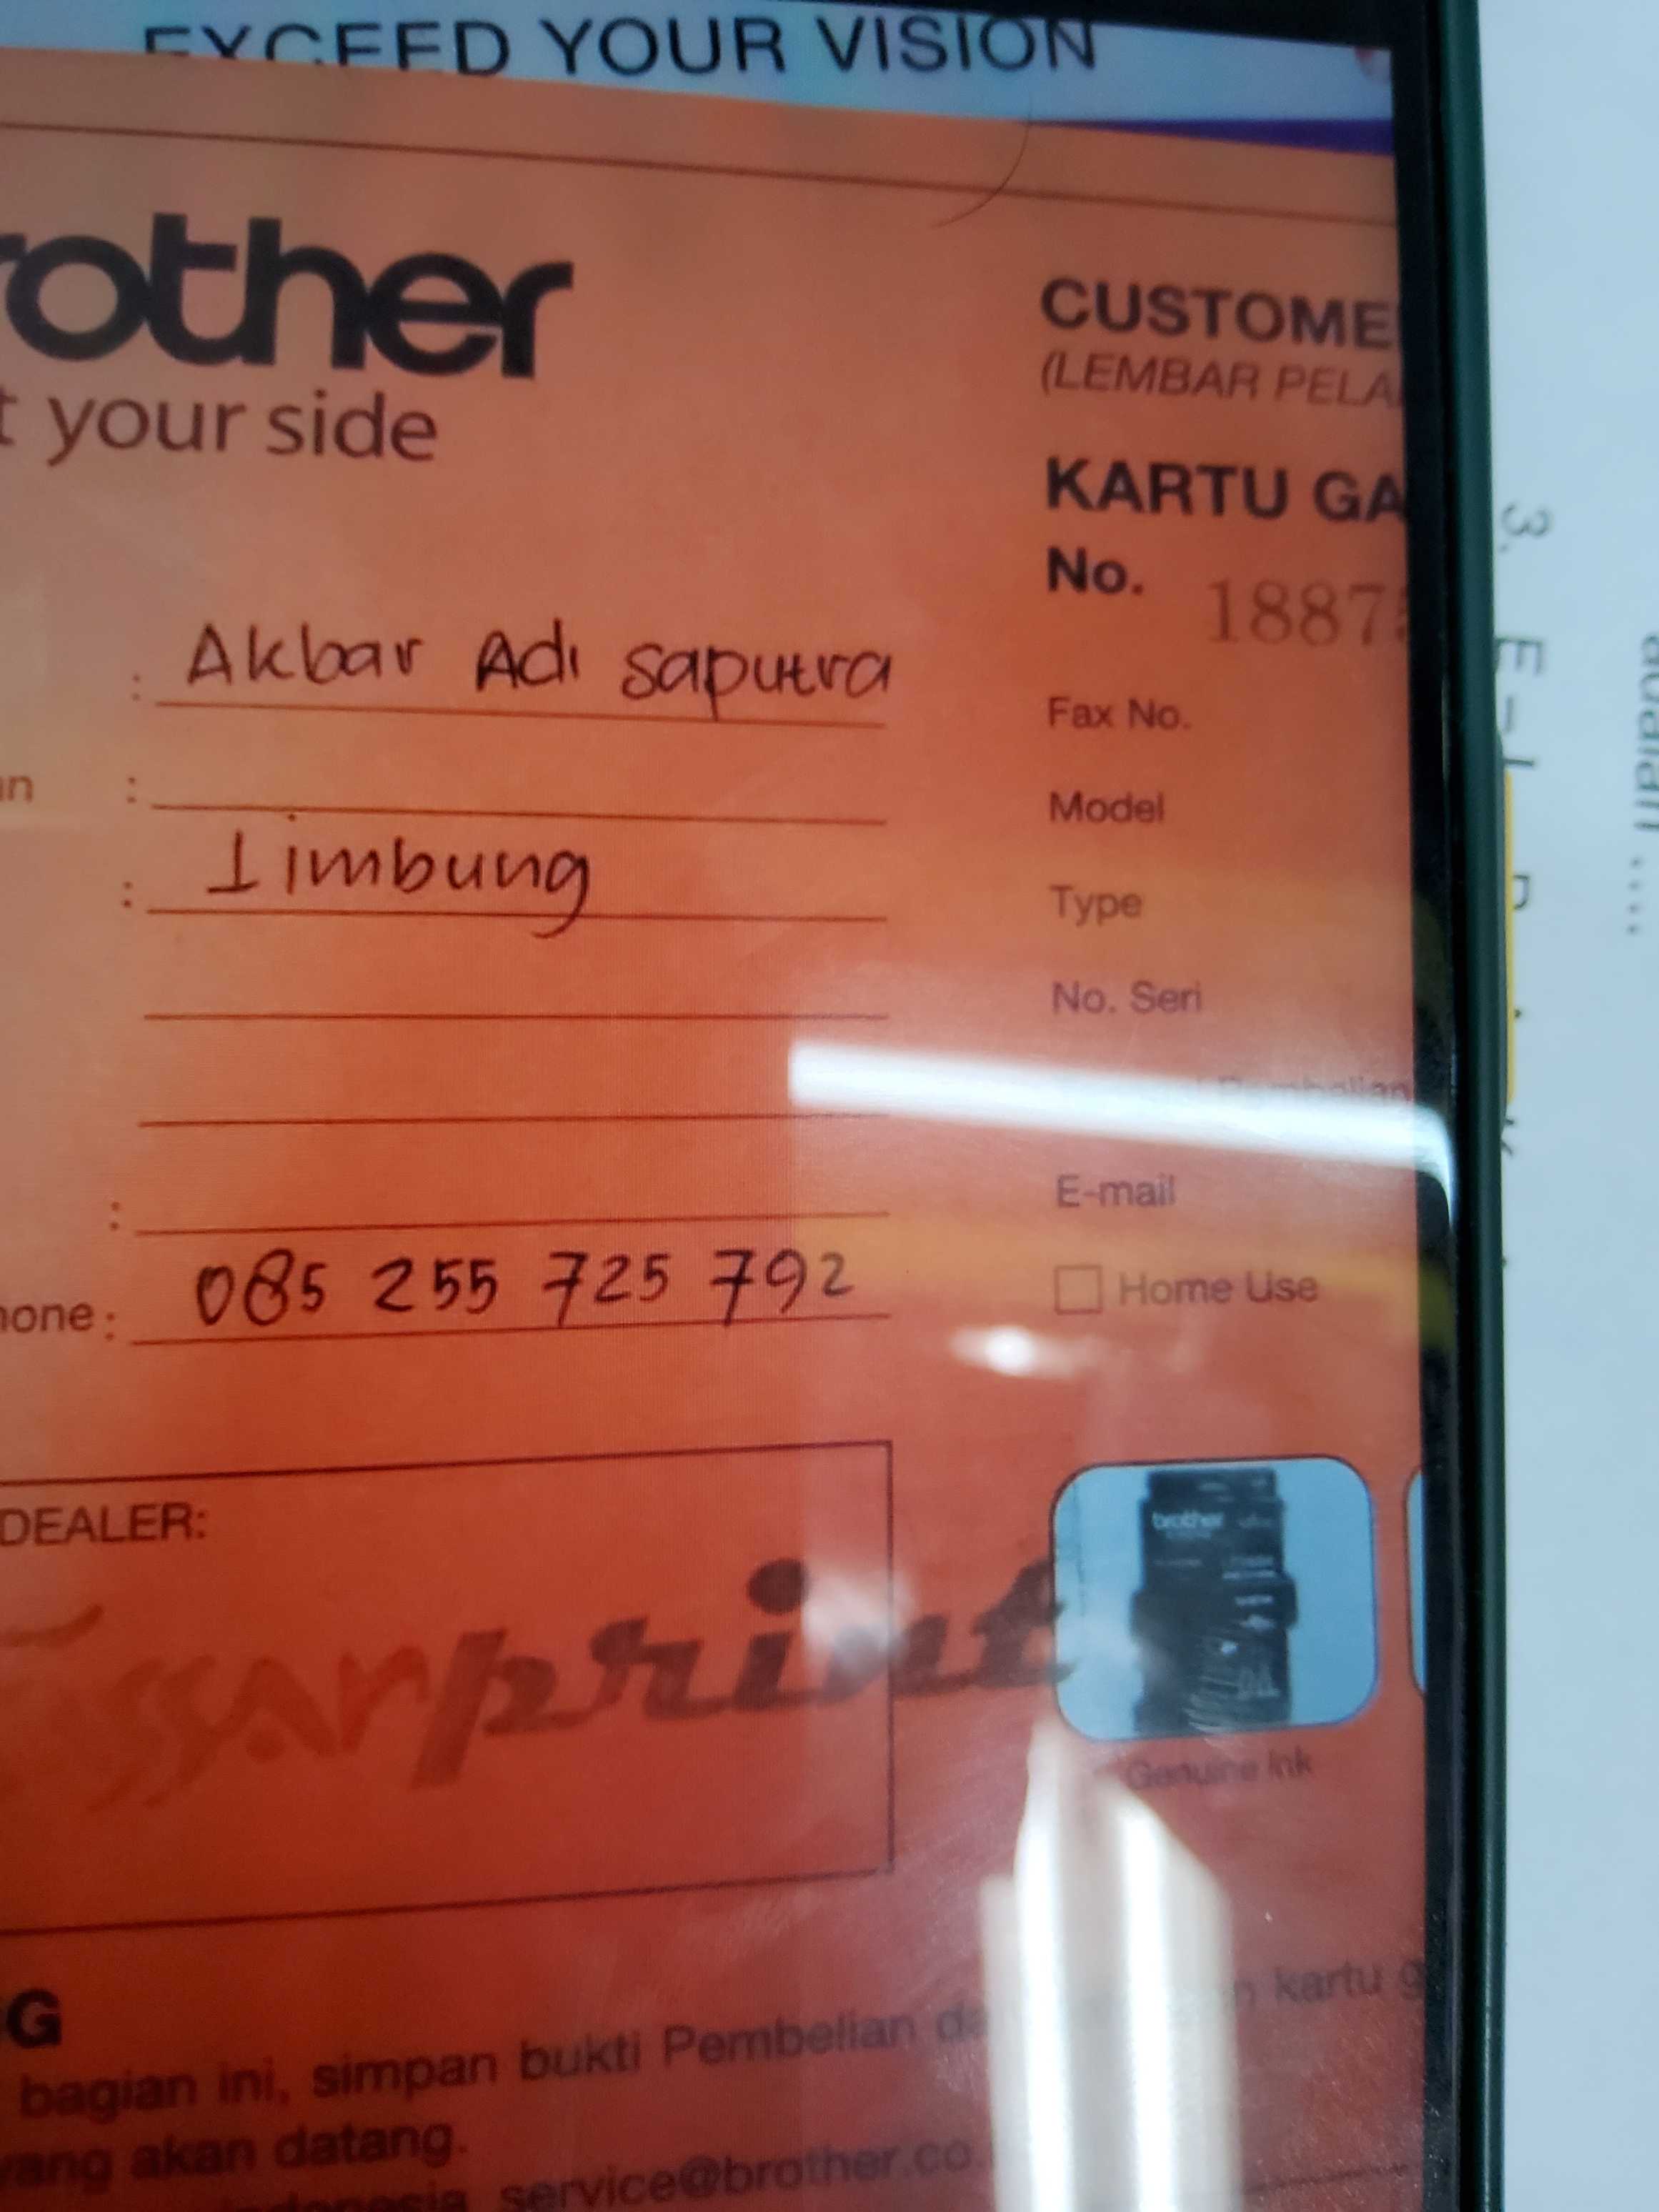 EXCEED YOUR VISION
rother
t your side
CUSTOME
(LEMBAR PELA
KARTU GA
No. 1887
: Akbar Adi saputra
Fax No.
an :
Model
: Limbung
Type
No. Seri
Pembelian
:
E-mail
hone : 085 255 725 792
Home Use
DEALER:
ssarprint
brother
Genuine Ink
G
bagian ini, simpan bukti Pembelian da kartu g
yang akan datang.
indonesia service@brother.co.
3.
adalah .....